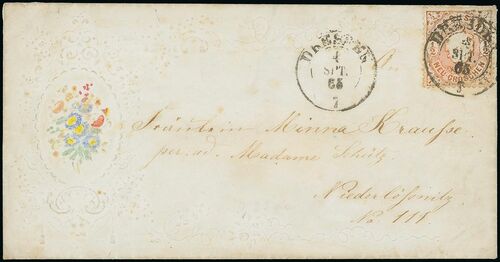 DRESDEN
4
SPT.
65
7
DRESDEN
SPT.
65
NEU-GROSCHEN
An
Fräulein Minna Krausse.
per. ad. Madame Schütz
Niederlößnitz
No. 118.